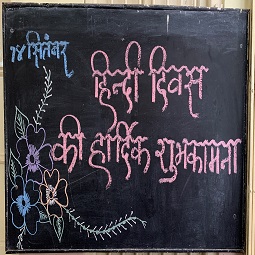 १४ सितंबर
हिन्दी दिवस
की हार्दिक शुभकामना